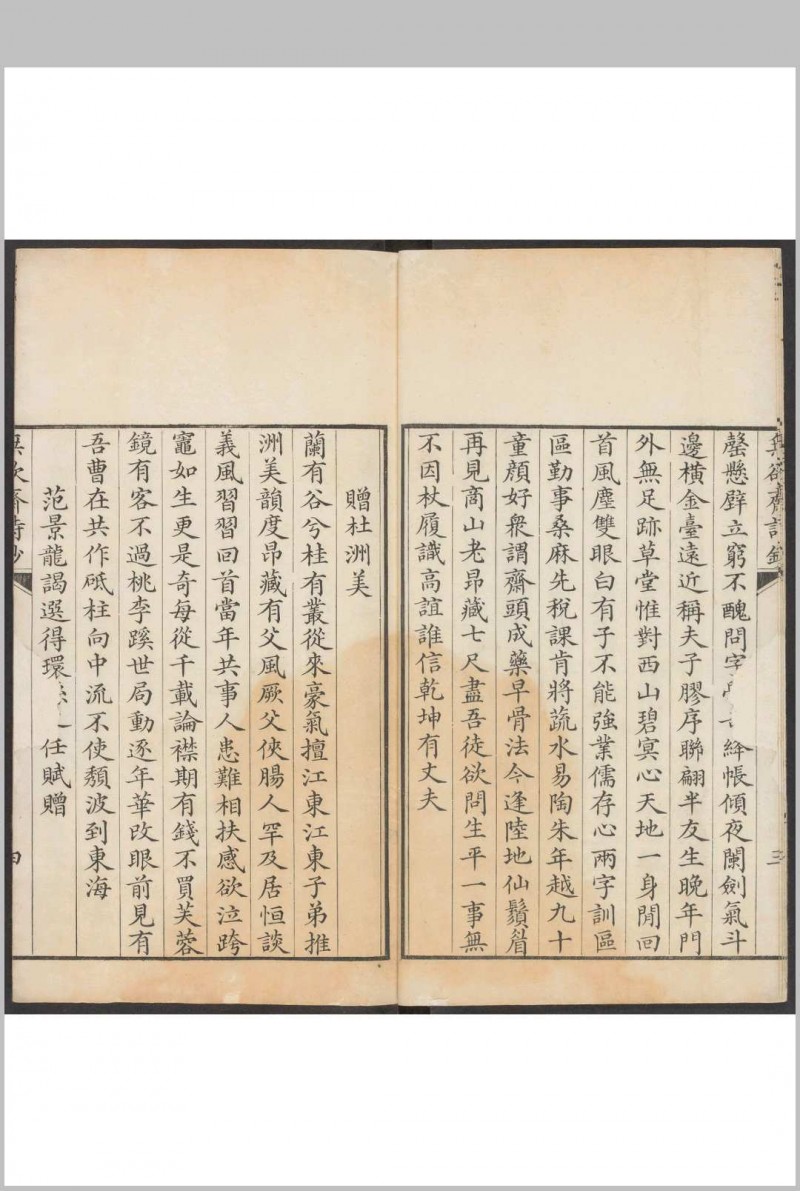 無欲齋詩鈔
三
罄懸壁立窮不醜問字
絳帳傾夜闌劍氣斗
邊橫金臺遠近稱夫子膠序聯翩半友生晚年門
外無足跡草堂惟對西山碧冥心天地一身閒回
首風塵雙眼白有子不能強業儒存心兩字訓區
區勤事桑麻先稅課肯將蔬水易陶朱年越九十
童顏好衆謂齋頭成藥早骨法今逢陸地仙鬚眉
再見商山老昂藏七尺盡吾徒欲問生平一事無
不因杖履識高誼誰信乾坤有丈夫
贈杜洲美
蘭有谷兮桂有叢從來豪氣擅江東江東子弟推
洲美韻度昂藏有父風厥父俠腸人罕及居恒談
義風習習回首當年共事人患難相扶感欲泣跨
竈如生更是奇每從千載論襟期有錢不買芙蓉
鏡有客不過桃李蹊世局動逐年華改眼前見有
吾曹在共作砥柱向中流不使頹波到東海
范景龍謁選得環
任賦贈
無欲齋詩鈔
四